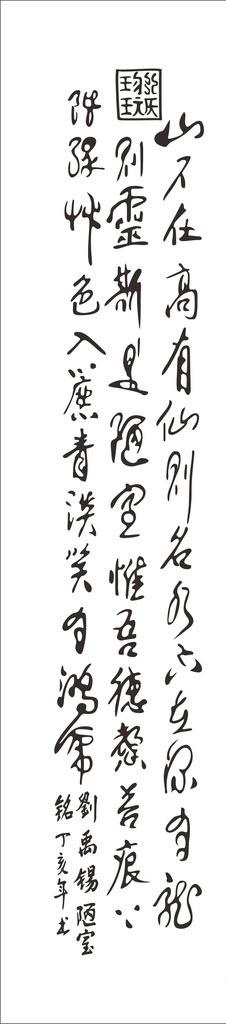 山不在高有仙则名水不在深有龙
则靈斯是陋室惟吾德馨苔痕上
阶绿草色入簾青谈笑有鸿儒
劉禹锡陋室
铭丁亥年书